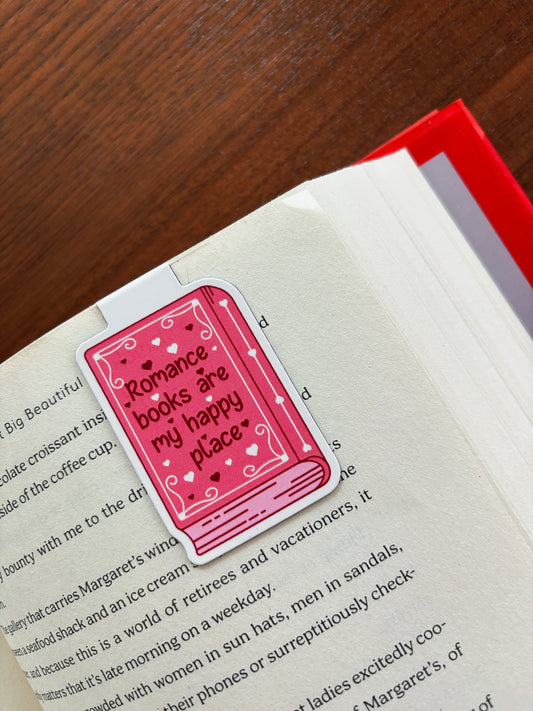 Romance
books are
my happy
place
Big Beautiful
colate croissant
side of the coffee cup.
bounty with me to the
gallery that carries Margaret's
a seafood shack and an ice cream
and because this is a world of retirees and vacationers, it
matters that it's late morning on a weekday.
with women in sun hats, men in sandals,
their phones or surreptitiously check-
ladies excitedly coo-
of Margaret's, of
of